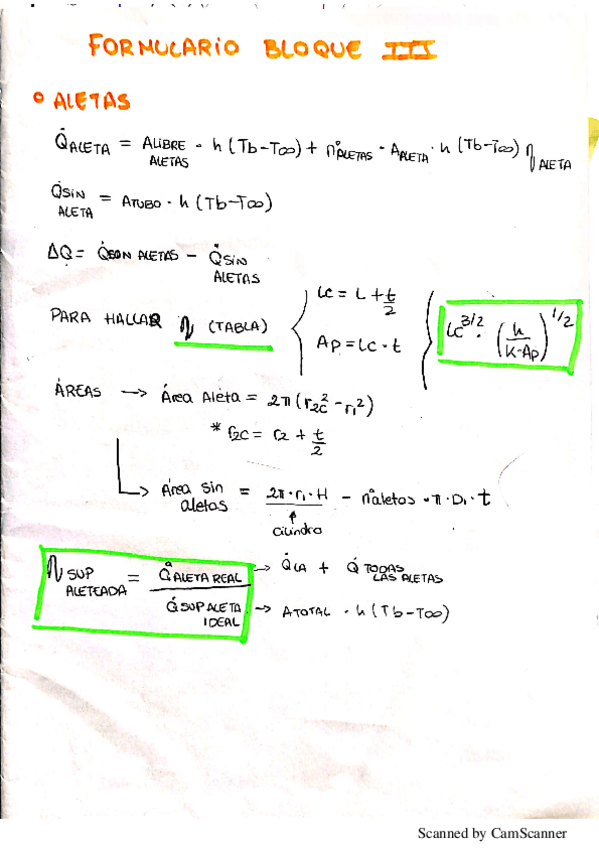 FORMULARIO BLOQUE III
ALETAS
Q̇ALETA = ALIBRE ALETAS · h (Tb-T∞) + nºALETAS · AALETA · h (Tb-T∞) η ALETA
Q̇SIN ALETA = ATUBO · h (Tb-T∞)
ΔQ̇ = Q̇CON ALETAS - Q̇SIN ALETAS
PARA HALLAR η (TABLA) { Lc = L + t/2
Ap = Lc · t { Lc^3/2 · (h/K·Ap)^1/2
ÁREAS → Área Aleta = 2π (r2c² - r1²)
* r2c = r2 + t/2
→ Área sin aletas = 2π · r1 · H - nºaletas · π · D1 · t
↑
cilindro
η SUP ALETEADA = Q̇ ALETA REAL / Q̇ SUP ALETA IDEAL
→ Q̇LA + Q̇ TODAS LAS ALETAS
→ ATOTAL · h (Tb-T∞)
Scanned by CamScanner